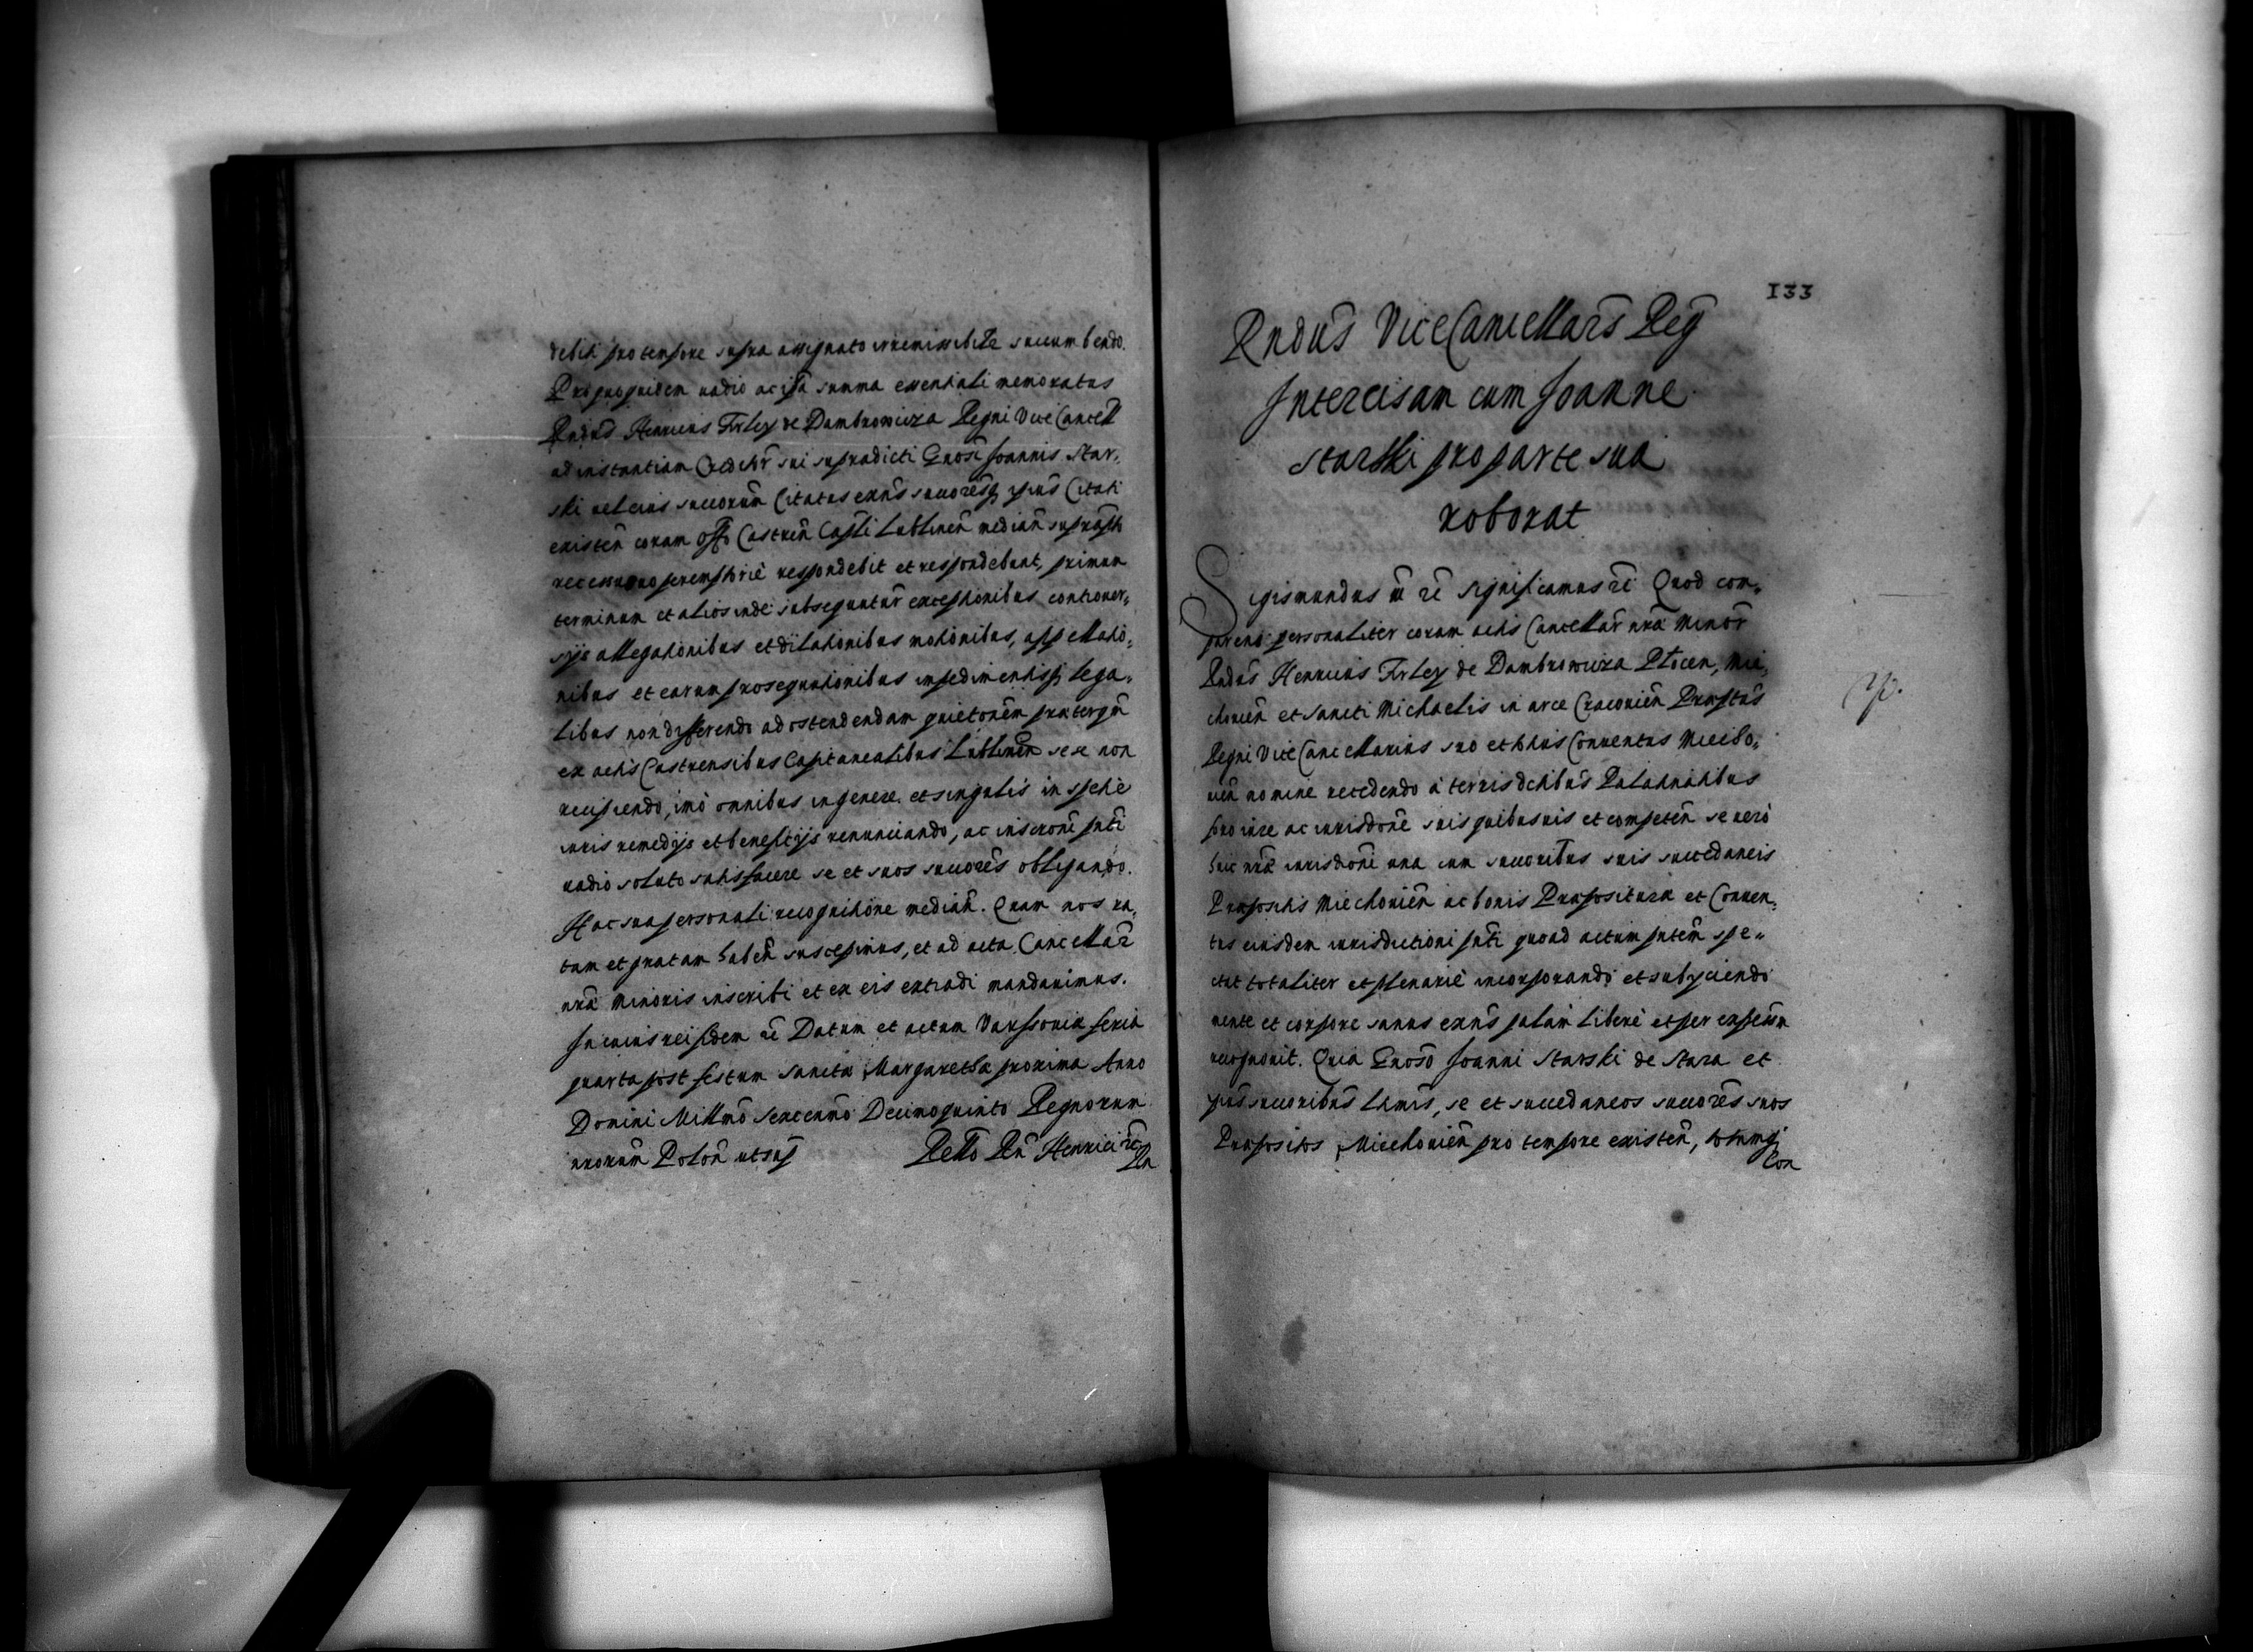 debiti pro tempore supra assignato irremissibiłr succumbendo.
Pro quoquidem vadio ac ipa summa essentiali memoratus
Rndus Henricus Firley de Dambrowicza Regni ViceCancell
ad instantiam Creditr sui supradicti Gnosi Joannis Star,
ski vel eius succorum Citatus exns succoresq ipius Citati
existen coram offo Castren Capli Lublinen median suprapti
recessuono peremptorie respondebit et respondebunt, primum
terminum et alios inde subsequentur exceptionibus controuer,
sijs allegationibus et dilationibus motionibus, appellatio,
nibus et earum prosequutionibus impedimentisq lega,
libus non differendo ad ostendendam quietonem praeterqm
ex actis Castrensibus Capitanealibus Lublinen se se non
recipiendo, imo omnibus in genere et singulis in specie
iuris remedijs et beneficijs renunciando, ac inscroni pnti
vadio soluto satisfacere se et suos succores obligando.
Hac sua personali recognitione median. Quam nos ra,
tam et gratam haben suscepimus, et ad acta Cancellar
nrae Minoris inscribi et ex eis extradi mandauimus.
In cuius rei fidem ec Datum et actum Varssouiae feria
quarta post festum Sanctae Margarethae proxima Anno
Domini Millmo Sexcenmo Decimoquinto Regnorum
nrorum Polon ut sup Rello Rn Henrici ec
Rn
133
Rndus ViceCancellars Reg
Intercisam cum Joanne
Starski pro parte sua
roborat
Sigismundus ut ec Significamus ec Quod com,
parens personaliter coram actis Cancellar nrae Minor
Rndus Henricus Firley de Dambrowicza Plocen, Mie,
chouien et Sancti Michaelis in arce Cracouien Praeptus
Regni ViceCancellarius suo et totius Conuentus Miecho,
uien nomine recedendo a terris dctibus Palatinatibus
proinre ac iurisdone suis quibusuis et competen se vero
huic nrae iurisdoni una cum succoribus suis succedaneis
Praepositis Miechouien ac bonis Praepositurae et Conuen,
tus eiusdem iurisdictioni pnti quoad actum pntem spe,
ctat totaliter et plenarie incorporando et subyciendo
mente et corpore sanus exns palam libere et per expssum
recognouit. Quia Gnoso Joanni Starski de Stara et
ipius succoribus ltmis, se et succedaneos succores suos
Praepositos Miechouien pro tempore existen, totumq
Con